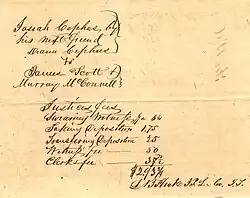 Josiah Cephas, by
his next friend
Diana Cephas
vs
James Scott &
Murray McConnell
Justices fees
Swearing Witness
Taking Deposition 175
Transferring Deposition 25
Witness fee 50
Clerks fee